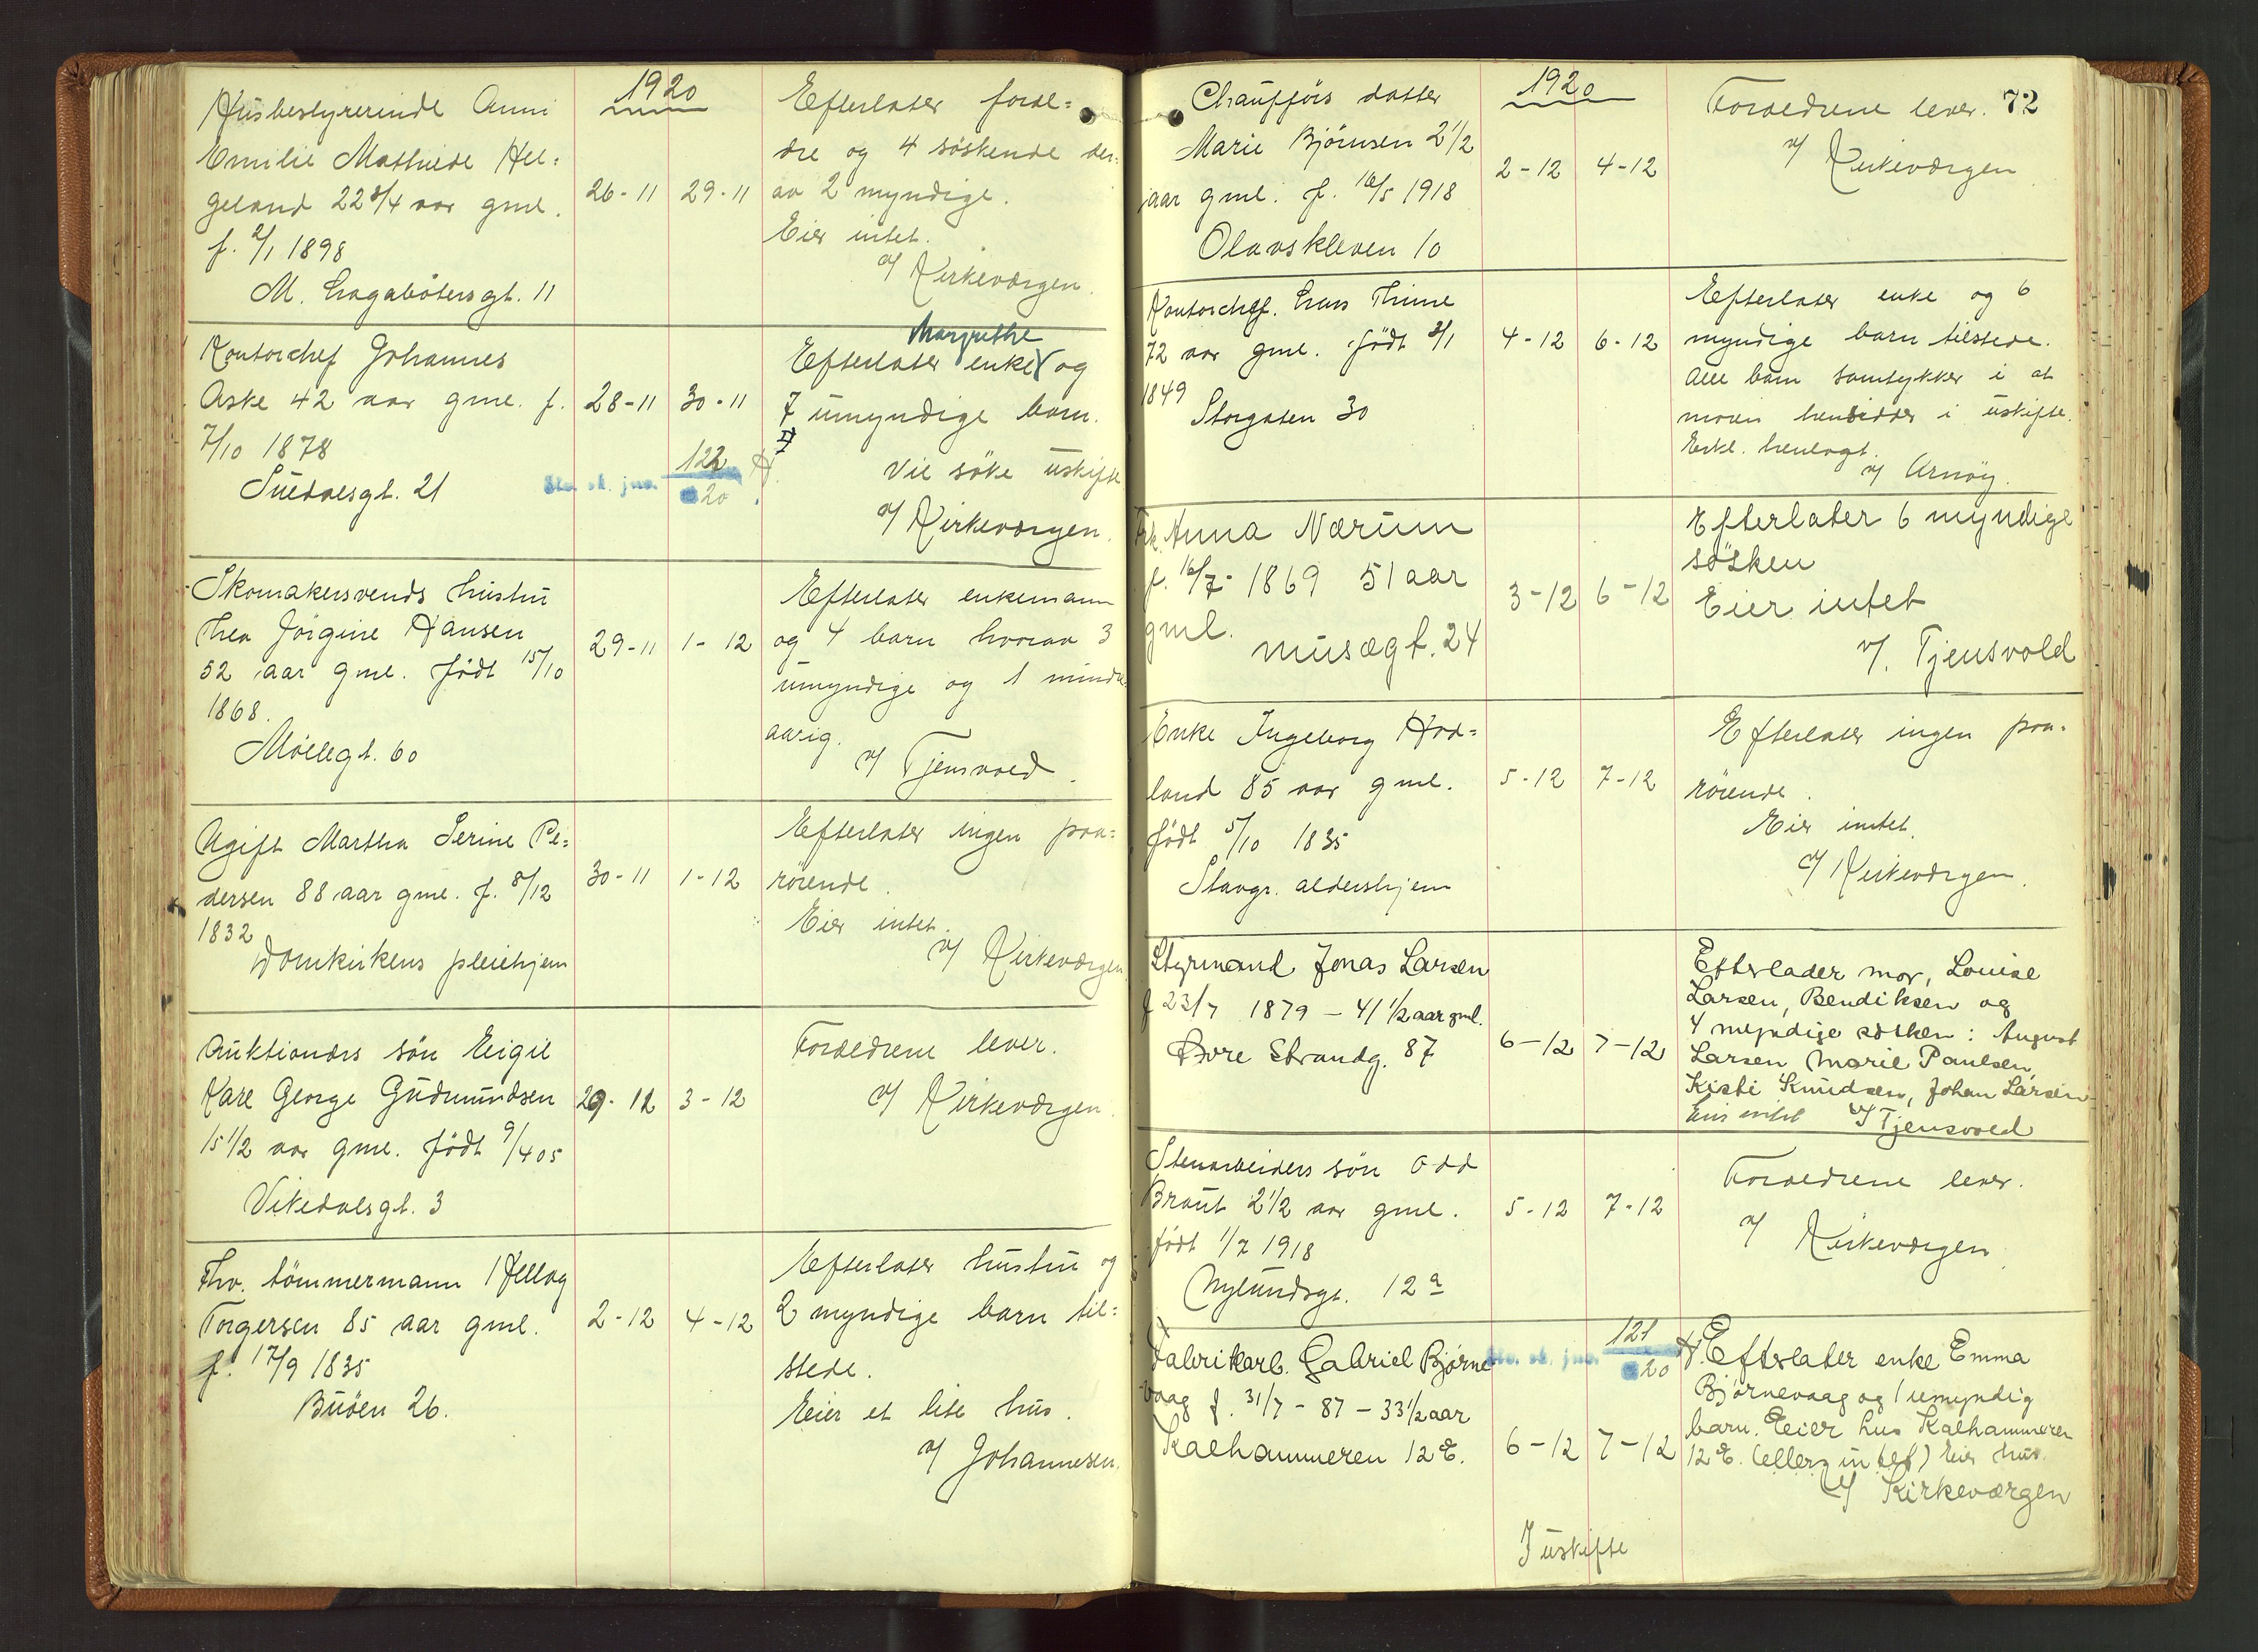 1920
Husbestyrerinde Anni
Emilie Mathilde Hel=
geland 22 3/4 aar gml.
f. 2/1 1898
M. Lagabötersgt. 11
26-11 29-11
Efterlater foræl=
dre og 4 söskende der=
av 2 myndige.
Eier intet.
v/ Kirkeværgen.
Kontorchef Johannes
Aske 42 aar gml. f.
7/10 1878
Suldalsgt. 21
28-11 30-11
Sta. sk. jnr. 122/20
Margrethe
Efterlater enke og
7 umyndige barn.
Vil söke uskifte
v/ Kirkeværgen.
Skomakersvends hustru
Thea Jörgine Hansen
52 aar gml. födt 15/10
1868.
Möllegt. 60
29-11 1-12
Efterlater enkemann
og 4 barn hvorav 3
umyndige og 1 mindre
aarig.
v/ Tjensvold.
Ugift Martha Serine Pe=
dersen 88 aar gml. f. 8/12
1832
Domkirkens pleiehjem
30-11 1-12
Efterlater ingen paa=
rörende.
Eier intet.
v/ Kirkeværgen
Auktionærs sön Eigil
Karl George Gudmundsen
15 1/2 aar gml. födt 9/4 05
Vikedalsgt. 3
29-12 3-12
Forældrene lever.
v/ Kirkeværgen.
Fhv. tömmermann Hellog
Torgersen 85 aar gml.
f. 17/9 1835
Buöen 26.
2-12 4-12
Efterlater hustru og
2 myndige barn til=
stede.
Eier et lite hus.
v/ Johannesen.
1920
72
Chauffjörs datter
Marie Bjørnsen 2 1/2
aar gml. f. 16/5 1918
Olavskleven 10
2-12 4-12
Forældrene lever.
v/ Kirkeværgen
Kontorchef. Lars Thime
72 aar gml. födt 3/1
1849
Storgaten 30
4-12 6-12
Efterlater enke og 6
myndige barn tilstede.
Alle barn samtykker i at
moren hensidder i uskifte.
Erkl. henlagt.
v/ Arnöy.
Frk. Anna Nærum
f. 16/7- 1869 51 aar
gml.
Musægt. 24
3-12 6-12
Efterlater 6 myndige
sösken
Eier intet
v/. Tjensvold
Enke Ingeborg Had=
land 85 aar gml.
födt 5/10 1835
Stavgr. aldershjem
5-12 7-12
Efterlater ingen paa=
rörende.
Eier intet.
v/ Kirkeværgen.
Styrmand Jonas Larsen
f 23/7 1879 - 41 1/2 aar gml.
Øvre Strandg. 87
6-12 7-12
Efterlader mor, Louise
Larsen, Bendiksen og
4 myndige søsken: August
Larsen, Marie Paulsen,
Kisti Knudsen, Johan Larsen
Eier intet v/ Tjensvold
Stenarbeiders sön Odd
Braut 2 1/2 aar gml.
födt 1/7 1918
Nylundsgt. 12 a
5-12 7-12
Forældrene lever.
v/ Kirkeværgen.
Fabrikarb. Gabriel Bjørne
vaag f. 31/7 - 87 - 33 1/2 aar
Kalhammeren 12 E.
Sta. sk. jnr. 121/20
6-12 7-12
Efterlater enke Emma
Bjørnevaag og 1 umyndig
barn. Eier hus Kalhammeren
12 E. (ellers intet) Eier hus.
v/ Kirkeværgen
I uskifte